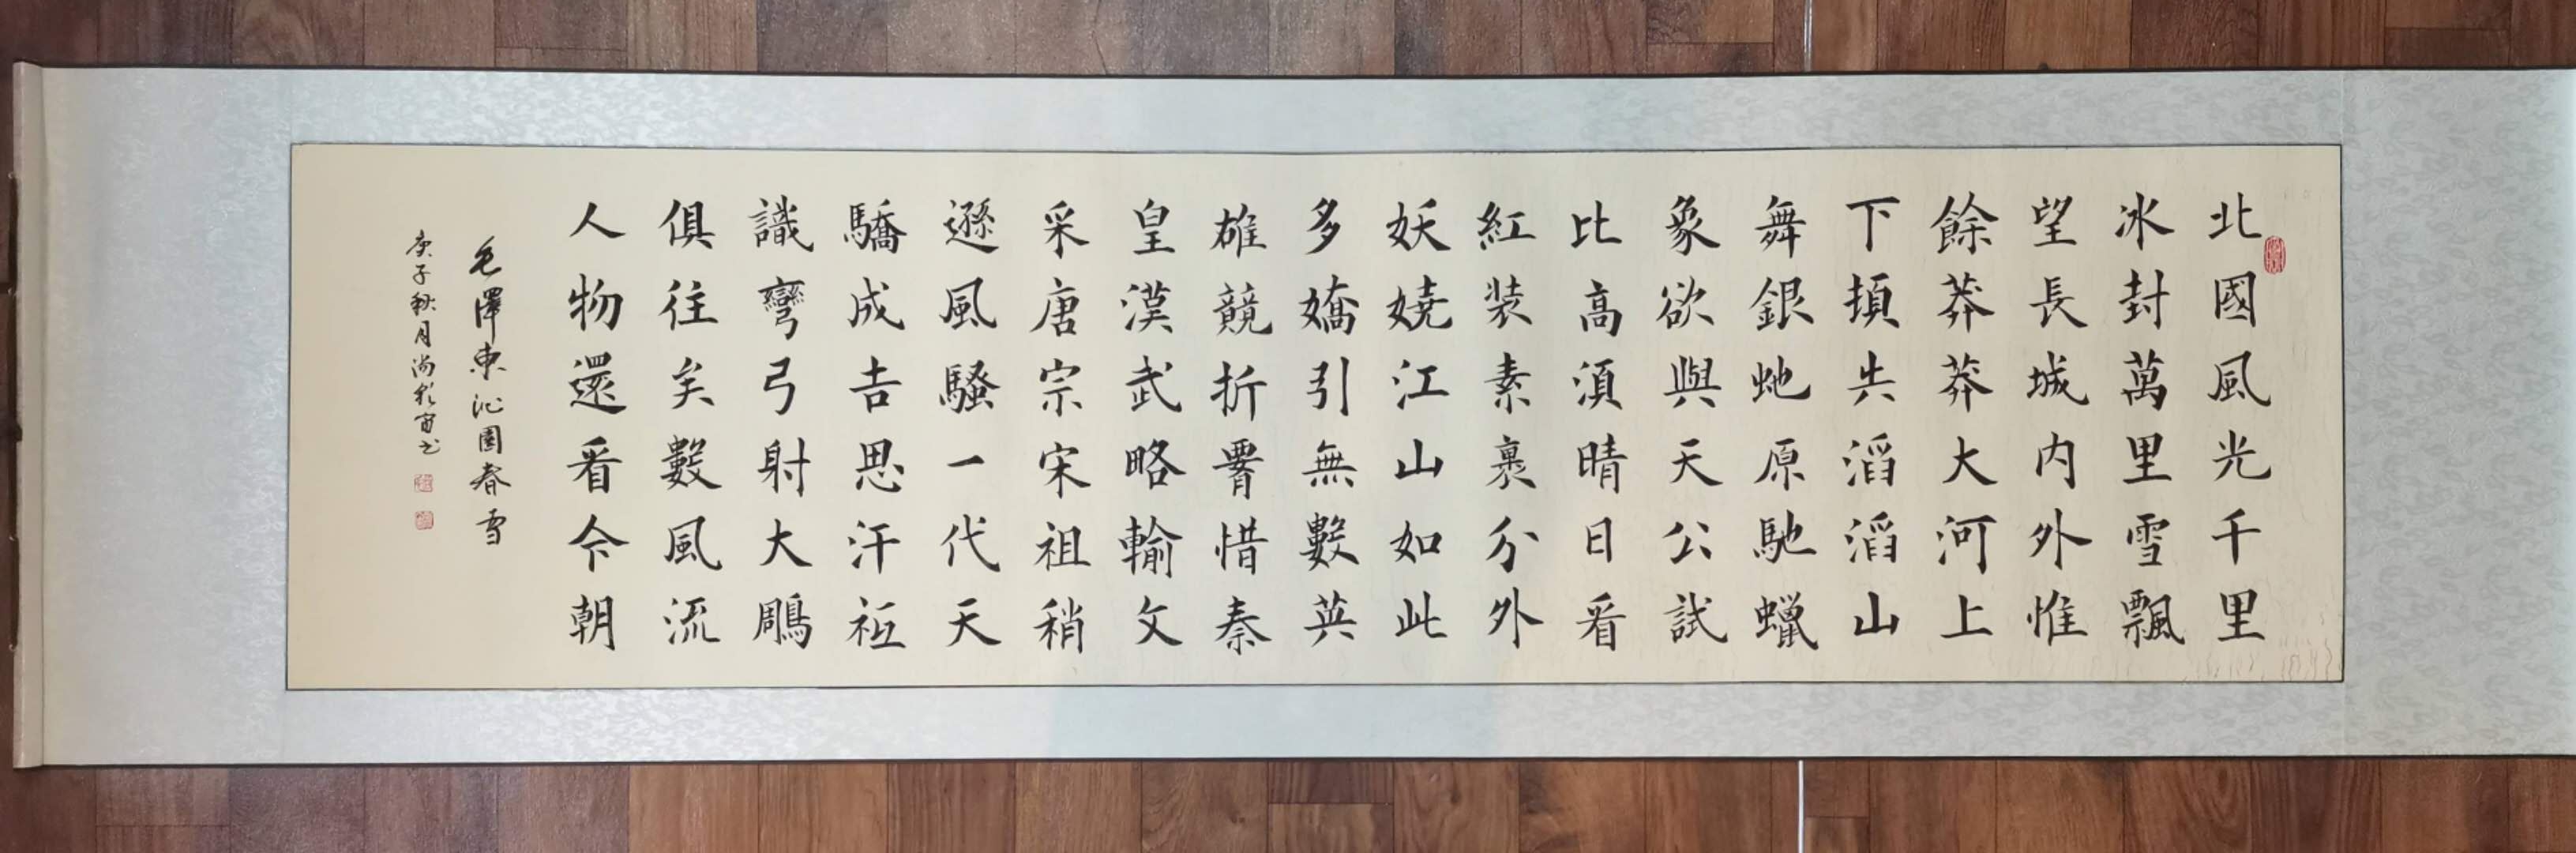 北國風光千里
冰封萬里雪飄
望長城内外惟
餘莽莽大河上
下頓失滔滔山
舞銀虵原馳蠟
象欲與天公試
比高須晴日看
紅装素裹分外
妖嬈江山如此
多嬌引無數英
雄競折腰惜秦
皇漢武略輸文
采唐宗宋祖稍
遜風騷一代天
驕成吉思汗祗
識彎弓射大鵰
俱往矣數風流
人物還看今朝
毛澤東沁園春雪
庚子秋月尚书